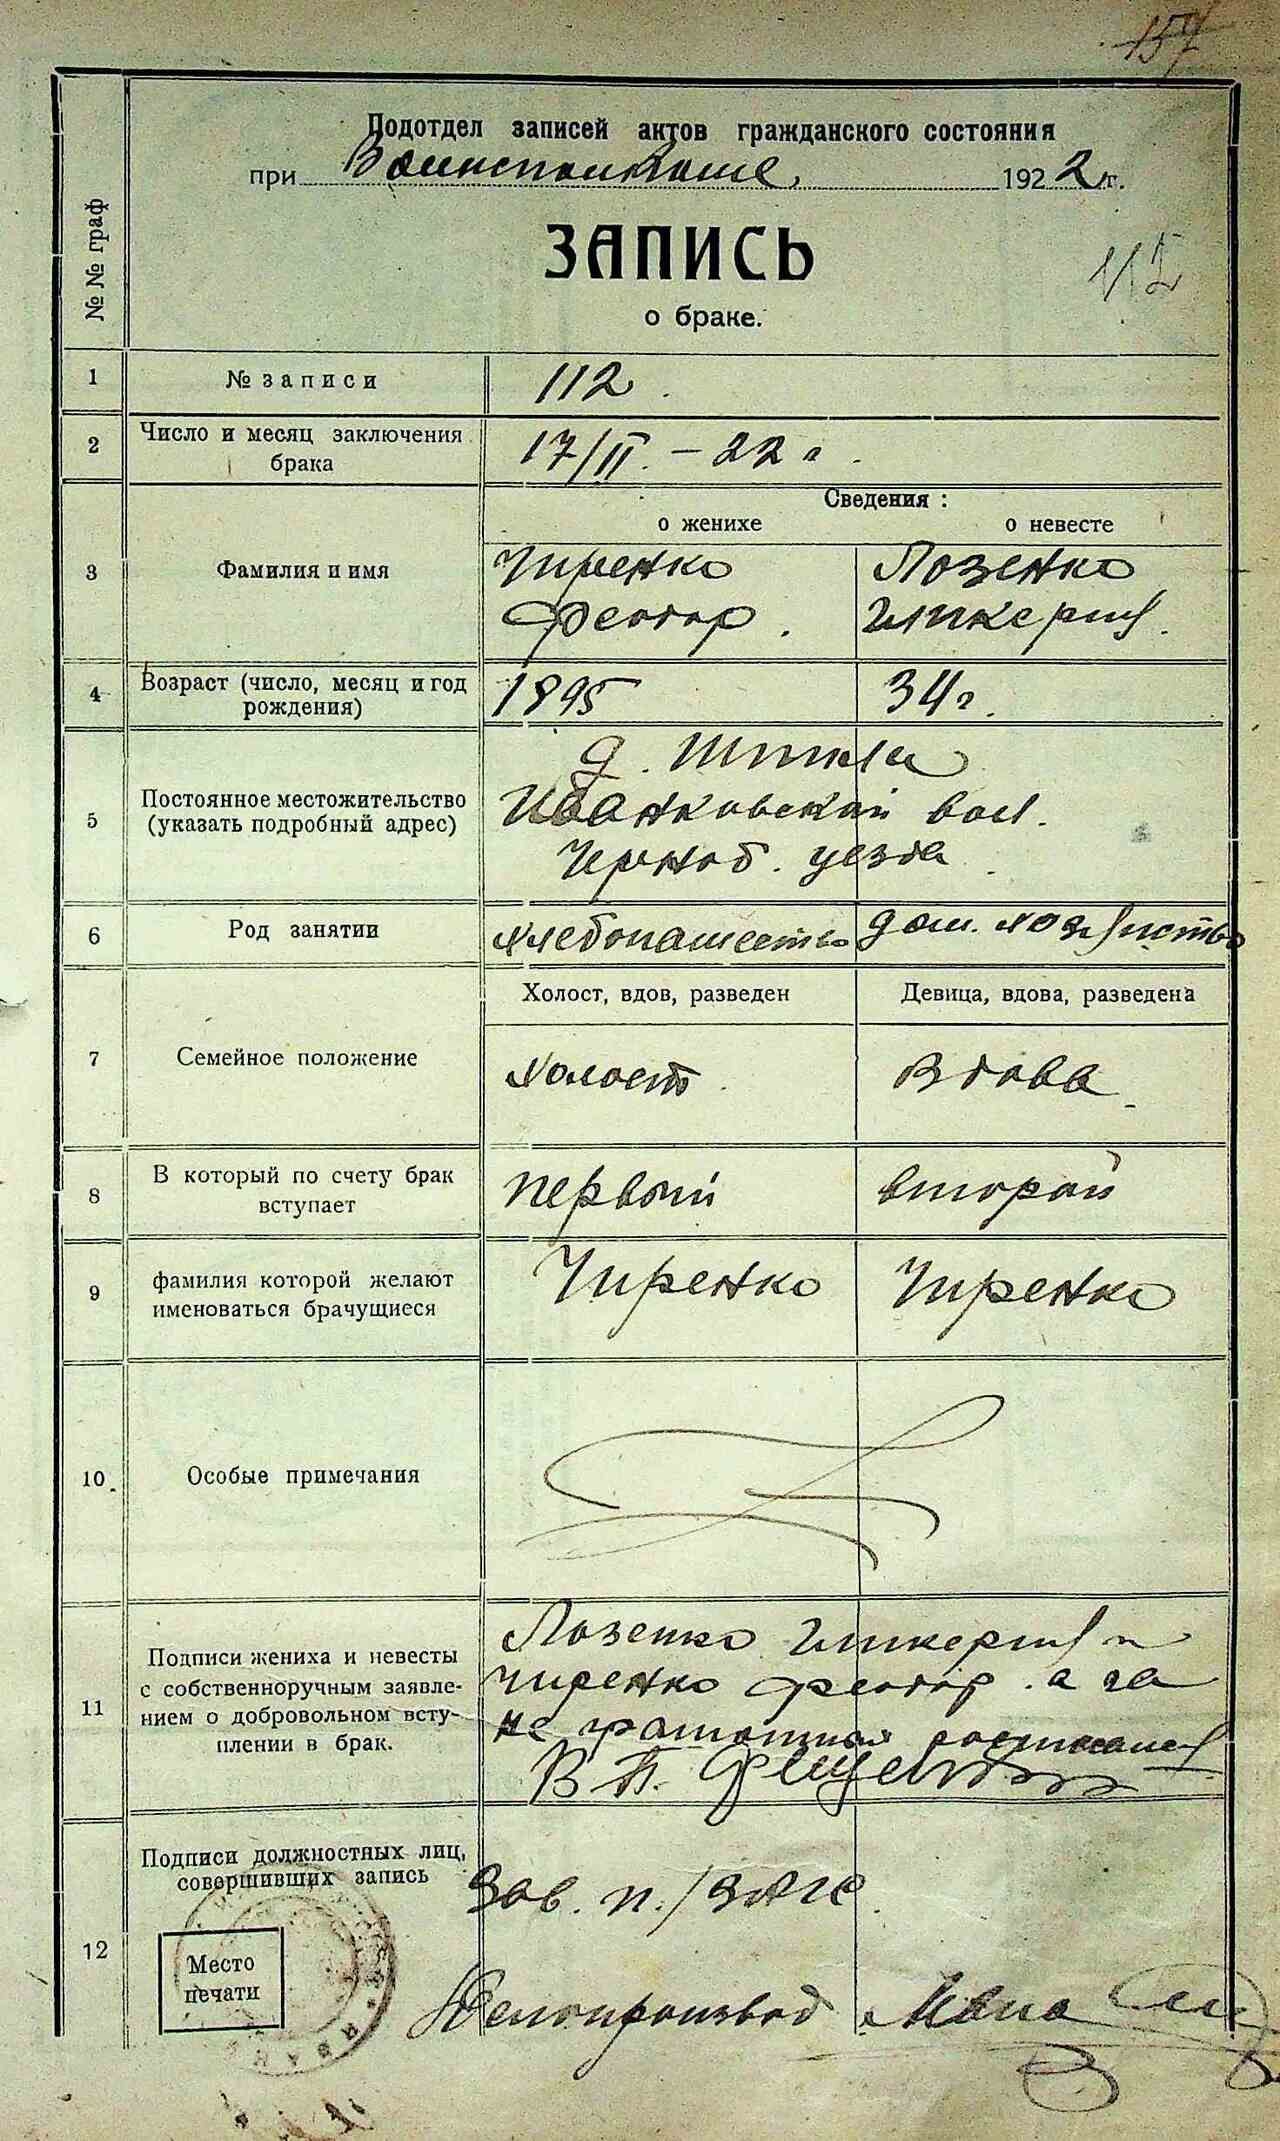 157
Подотдел записей актов гражданского состояния
при Волисполкоме 1922 г.
№№ граф
ЗАПИСЬ
о браке.
112
1 № записи 112.
2 Число и месяц заключения брака 17/II. – 22 г.
Сведения:
о женихе о невесте
3 Фамилия и имя Чиренко Лозенко
Феодор. Гликерия.
4 Возраст (число, месяц и год рождения) 1895 34 г.
5 Постоянное местожительство (указать подробный адрес) д.
Иванковской вол.
Черноб. уезда.
6 Род занятии хлебопашество дом. хозяйство
Холост, вдов, разведен Девица, вдова, разведена
7 Семейное положение холост вдова
8 В который по счету брак вступает первый второй
9 фамилия которой желают именоваться брачущиеся Чиренко Чиренко
10. Особые примечания
11 Подписи жениха и невесты с собственноручным заявлением о добровольном вступлении в брак.
Лозенко Гликерия и
Чиренко Феодор. а за
не грамотная росписался
В П.
12 Подписи должностных лиц, совершивших запись
Зав. п./ЗАГС.
Место печати
Делопроизвод